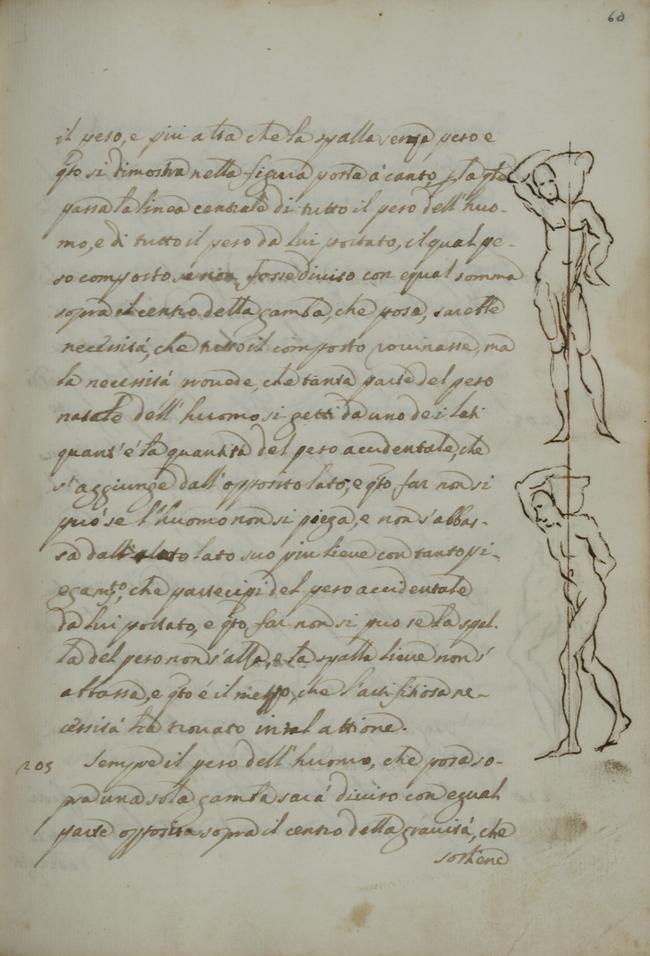 60
il peso, e più alta che la spalla senza peso e
q̃to si dimostra nella figura posta à canto, p la q̃le
passa la linea centrale di tutto il peso dell'huo-
mo, e di tutto il peso da lui portato, il qual pe-
so composto se non fosse diviso con equal somma
sopra il centro della gamba, che posa, sarebbe
necessità, che tutto il composto rovinasse, ma
la necessità provede, che tanta parte del peso
natale dell'huomo si getti da uno dei lati
quant'è la quantità del peso accidentale, che
s'aggiunge dall'opposito lato, e q̃to far non si
può se l'huomo non si piega, e non s'abbas-
sa dall' lato suo più lieve con tanto pi-
egamto, che partecipi del peso accidentale
da lui portato, e q̃to far non si puo se la spal-
la del peso non s'alza, e la spalla lieve non s'
abbassa, e q̃to è il mezzo, che l'artifitiosa ne-
cessità ha trovato in tal attione.
205 Sempre il peso dell'huomo, che posa so-
pra una sola gamba sarà diviso con equal
parte opposita sopra il centro della gravità, che
sostiene